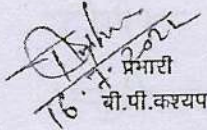 16.7.2022
प्रभारी
बी.पी.कश्यप